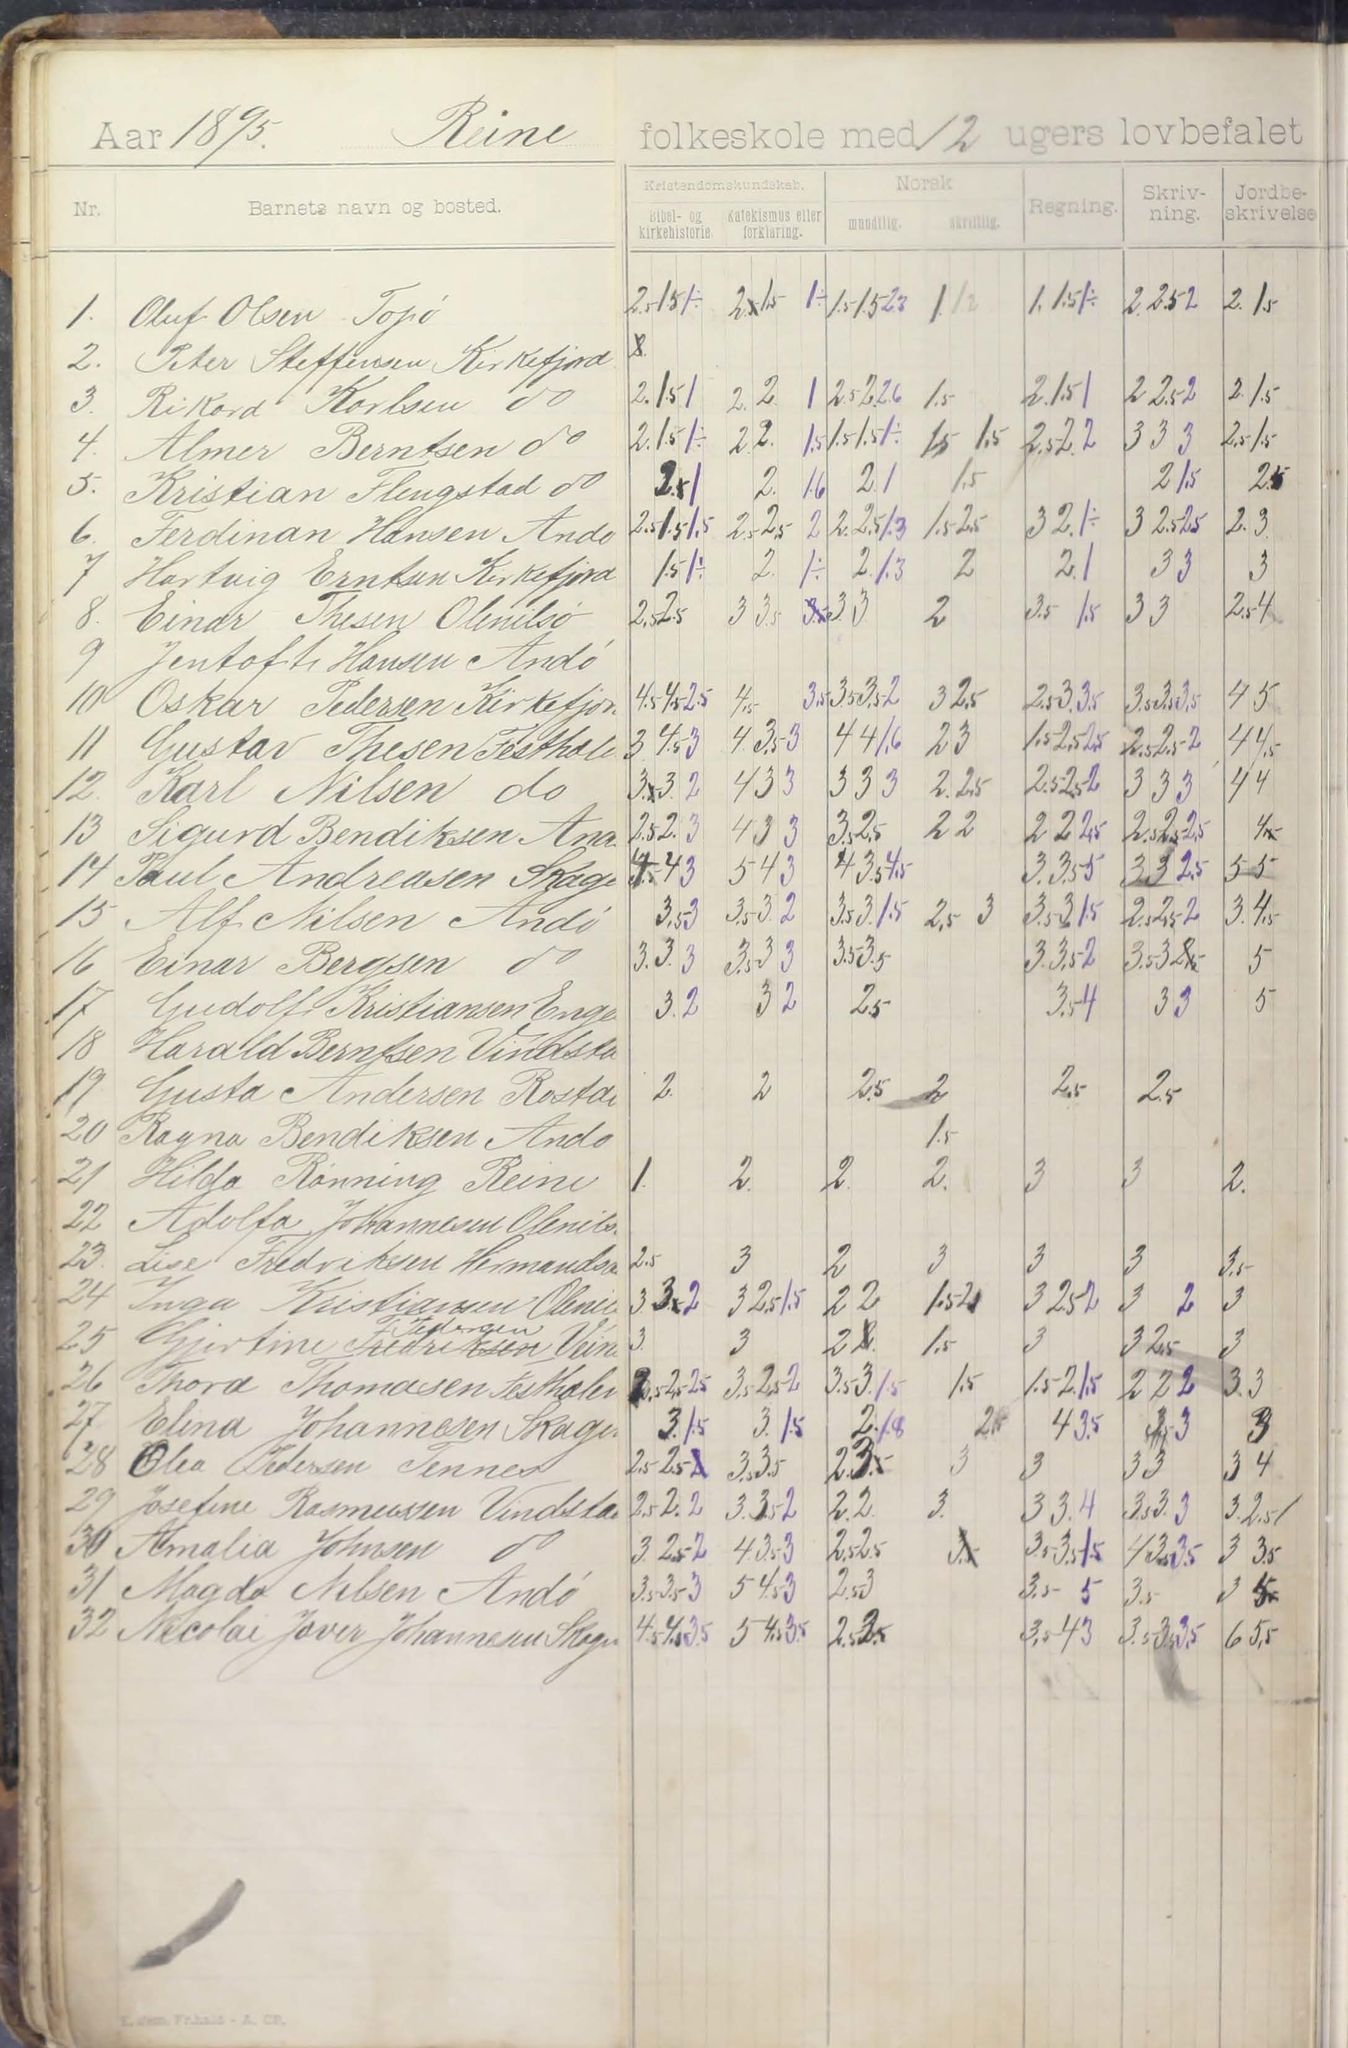 Aar 1895. Reine folkeskole med 12 ugers lovbefalet
Nr. Barnets navn og bosted. Kristendomskundskab. Norsk Regning. Skriv-ning. Jordbe-skrivelse
Bibel- og kirkehistorie. Katekismus eller forklaring. mundtlig. skriftlig.
1. Oluf Olsen Topö 2.5 1.5 1÷ 1.5 1÷ 1.5 1.5 2.3 1. 1.5 1÷ 2 2.5 2 2. 1.5
2. Peter Steffensen Kirkefjord
3. Rikard Karlsen do 2. 1.5 1 2. 2. 1 2.5 2. 2.6 1.5 2. 1.5 1 2 2.5 2 2. 1.5
4. Almer Berntsen do 2. 1.5 1÷ 2. 2. 1.5 1.5 1.5 1÷ 1.5 1.5 2.5 2. 2 3 3 3 2.5 1.5
5. Kristian Flengstad do 2. 1.6 2. 1 1.5 2 1.5 2.5
6. Ferdinan Hansen Andö 2.5 1.5 1.5 2.5 2.5 2 2. 2.5 1.3 1.5 2.5 3 2. 1÷ 3 2.5 2.5 2. 3
7 Hartvig Erntsen Kirkefjord 1.5 1÷ 2. 1÷ 2. 1.3 2 2. 1 3 3 3
8. Einar Thesen Olenilsö 2.5 2.5 3 3.5 3 3 2 3.5 1.5 3 3 2.5 4
9 Jentoft Hansen Andö
10 Oskar Pedersen Kirkefjor 4.5 4.5 2.5 4.5 3.5 3.5 3.5 2 3 2.5 2.5 3. 3.5 3.5 3.5 3.5 4 5
11 Gustav Thesen Festhæle 3 4.5 3 4 3.5 3 4 4 1.6 2 3 1.5 2.5 2.5 2.5 2.5 2 4 4.5
12. Karl Nilsen do 3. 2 4 3 3 3 3 3 2. 2.5 2.5 2.5 2 3 3 3 4 4
13 Sigurd Bendiksen And 2.5 2. 3 4 3 3 3.5 2.5 2 2 2 2 2.5 2.5 2.5 2.5
14 Paul Andreasen Skage 4 3 5 4 3 4 3.5 4.5 3. 3.5 5 3 3 2.5 5 5
15 Alf Nilsen Andö 3.5 3 3.5 3. 2 3.5 3. 1.5 2.5 3 3.5 3 1.5 2.5 2.5 2 3. 4.5
16 Einar Bergsen do 3. 3. 3 3.5 3 3 3.5 3.5 3. 3.5 2 3.5 3 5
17 Gudolf Kristiansen Enge 3. 2 3 2 2.5 3.5 4 3 3 5
18 Harald Berntsen Vindsta
19 Gusta Andersen Rostad 2. 2 2.5 2 2.5 2.5
20 Ragna Bendiksen Andö 1.5
21 Hilda Rönning Reine 1. 2. 2. 2. 3 3 2.
22 Adolfa Johannesen Olenils
23. Lise Fredriksen Hermandsd 2.5 3 2 3 3 3 3.5
24 Inga Kristiansen Olenil 3 2 3 2.5 1.5 2 2 1.5 3 2.5 2 3 2 3
Pedersen
25 Gjertine Fredriksen Vein 3. 3 2 1.5 3 3 2.5 3
26 Thora Thomasen Festhæle 2.5 2.5 3.5 2.5 2 3.5 3. 1.5 1.5 1.5 2. 1.5 2 2 2 3. 3
27 Elina Johannesen Skage 3. 1.5 3. 1.5 2. 1.8 4 3.5 3 3
28 Olea Pedersen Tennes 2.5 2.5 3.5 3.5 2. 3 3 3 3 3 4
29 Josefine Rasmussen Vindstad 2.5 2. 2 3. 3.5 2 2. 2. 3. 3 3. 4 3.5 3. 3 3. 2.5
30 Amalia Johnsen do 3 2.5 2 4 3.5 3 2.5 2.5 3.5 3.5 1.5 4 3.5 3.5 3 3.5
31 Magda Nilsen Andö 3.5 3.5 3 5 4.5 3 2.5 3 3.5 5 3.5 3
32 Nicolai Javer Johannesen Skage 4.5 4.5 3.5 5 4.5 3.5 2.5 3.5 4 3 3.5 3.5 3.5 6 5.5